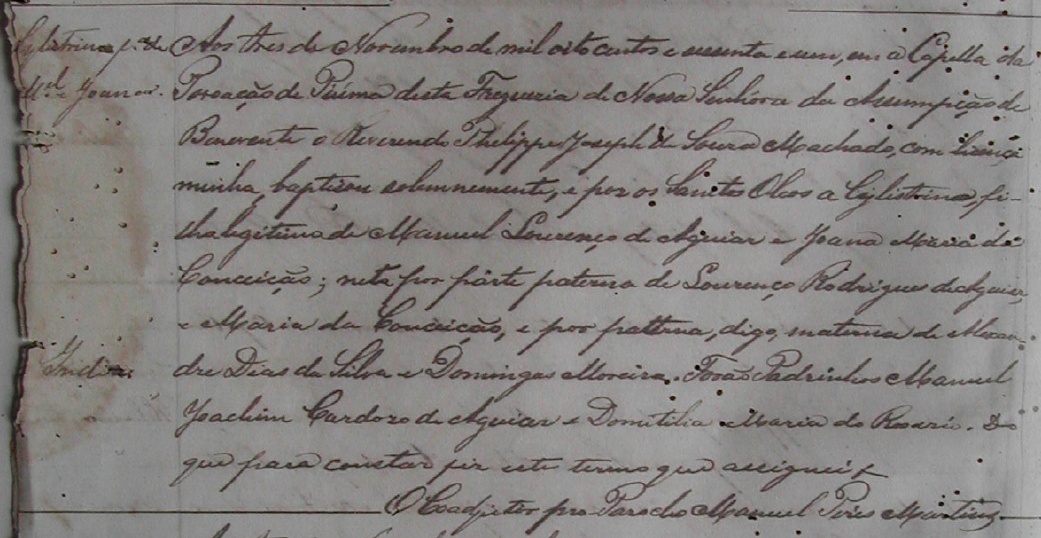 Aos tres de Novembro de mil oito centos e sessenta e um, em a Capella da
Mel e Joanna. Povoação de Piúma desta Freguesia de Nossa Senhóra da Assumpção de
Benevente o Reverendo Phelippe Joseph de Souza Machado, com licença
minha, baptisou solemnemente, e poz os Santos Oleos a Cylistrina, fi-
lha legitima de Manuel Lourenço de Aguiar e Joana Maria da
Conceição; neta por parte paterna de Lourenço Rodrigues de Aguiar,
e Maria da Conceição, e por patterna, digo, materna de Alexan-
India. dre Dias da Silva e Domingas Moreira. Forão Padrinhos Manuel
Joachim Cardozo de Aguiar e Domitilia Maria do Rosario. Do
que para constar fiz este termo que assignei
O Coadjutor pro Parocho Manuel Pires Martins